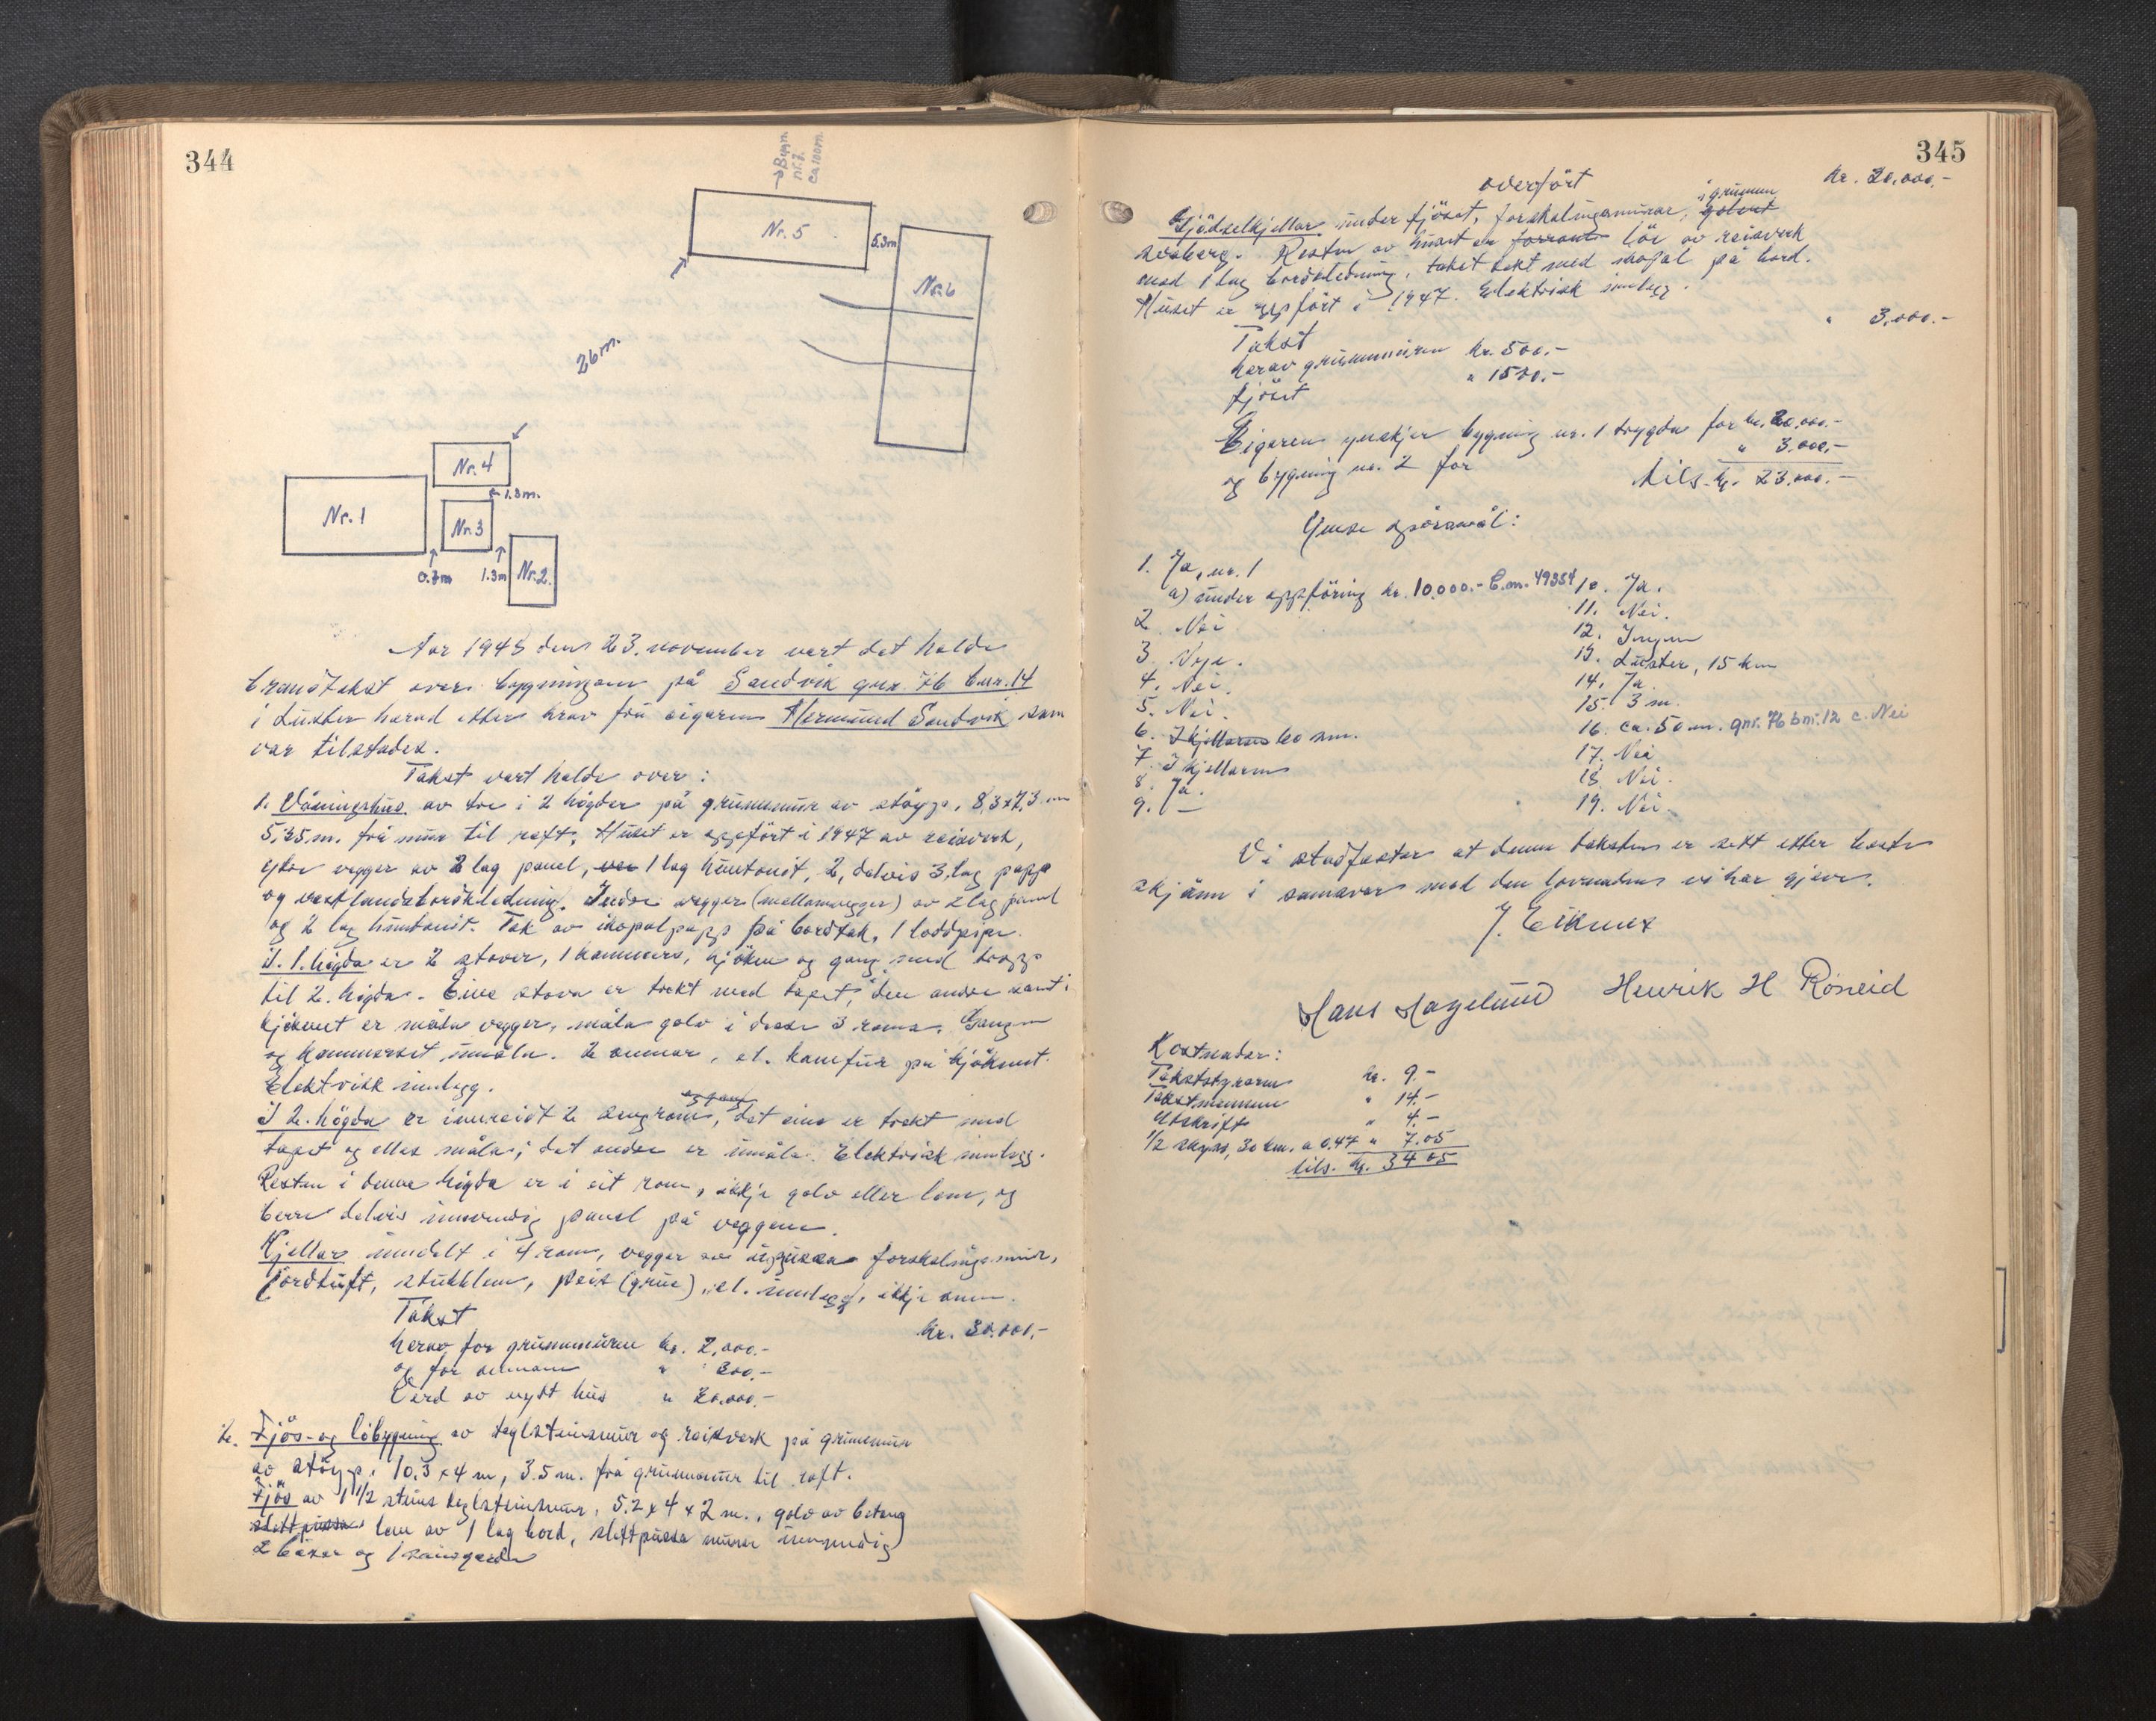 344
→Bygn.
nr. 7.
ca 100 m.
Nr. 5
5.3m
Nr. 6
26 m.
Nr. 4
←1.3m.
Nr. 1
Nr. 3
0.7m
1.3m
Nr. 2.
Aar 1948 den 23. november vart det halde
brandtakst over bygningane på Sandvik gnr. 76 bnr. 14
i Luster herad etter krav frå eigaren Hermund Sandvik som
var tilstades.
Takst vart halde over:
1. Våningshus av tre i 2 högder på grunnmur av støyp, 8,3x7,3 m
5.35 m. frå mur til raft. Huset er uppført i 1947 av reisverk,
ytre vegger av 2 lag panel, 1 lag huntonit, 2, delvis 3 lag papp
og vestlandsbordkledning. Indre vegger (mellomvegger) av 2 lag panel
og 2 lag huntonit. Tak av ikopalpapp på bordtak, 1 loddpipe.
I 1. högda er 2 stover, 1 kammers, kjöken og gang med trapp
til 2. högda. Eine stova er trekt med tapet, den andre samt i
kjökenet er måla vegger, måla golv i desse 3 roma. Gangen
og kammerset umåla. 2 omnar, el. komfur på kjökenet.
Elektrisk innlegg.
og gang
I 2. högda er innreidt 2 sengrom, det eine er trekt med
tapet og elles måla; det andre er umåla. Elektrisk innlegg.
Resten i denne högda er i eit rom, ikkje golv eller lem, og
berre delvis innvendig panel på veggene.
Kjellar inndelt i 4 rom, vegger av upussa forskalingsmur,
jordtuft, stubblem, peis (grue), el. innlegg, ikkje omn.
Takst
kr. 30.000,-
herav for grunnmuren kr. 2,000.-
og for omnane " 300.-
Verd av nytt hus " 30.000.-
2. Fjös- og löbygning av teglsteinsmur og reisverk på grunnmur
av støyp, 10,3 x 4 m, 3.5 m. frå grunnmur til raft.
Fjös av 1 1/2 steins teglsteinsmur, 5.2 x 4 x 2 m., golv av betong
slettpussa lem av 1 lag bord, slettpussa murar innvendig
2 båsar og 1 sauegarde
345
overfört kr. 30.000,-
i grunnen
Gjödselkjellar under fjöset, forskalingsmurar, golvet
svaberg. Resten av huset er forrant löe av reisverk
med 1 lag bordkledning, taket tekt med shofal på bord.
Huset er uppfört i 1947. Elektrisk innlegg.
Takst " 3.000.-
herav grunnmuren kr. 500.-
fjöset " 1500.-
Eigaren ynskjer bygning nr. 1 trygda for kr. 20.000.-
og bygning nr. 2 for " 3.000,-
tils. kr. 23.000.-
Ymse spörsmål:
1. Ja, nr. 1
a) under uppföring kr. 10.000.- b.m. 49354
2. Nei
3. Noje.
4. Nei.
5. Nei.
6. I kjellaren 60 nm.
7. I kjellaren
8. Ja.
9. -
10. Ja.
11. Nei.
12. Ingen
13. Luster, 15 km
14. Ja.
15. 3 m.
16. ca. 50 m. gnr. 76 bnr. 12 c. Nei
17. Nei
18. Nei.
19. Nei.
Vi stadfester at denne taksten er sett etter beste
skjönn i samsvar med den lovnaden vi har gjeve.
J. Eikenes
Hans Hagelund Henrik H Röneid
Kostnader:
Takststyraren kr. 9.-
Takstmennene " 14.-
Utskrift " 4.-
1/2 skyss, 30 km. a 0.47 " 7.05
tils. kr. 34 05